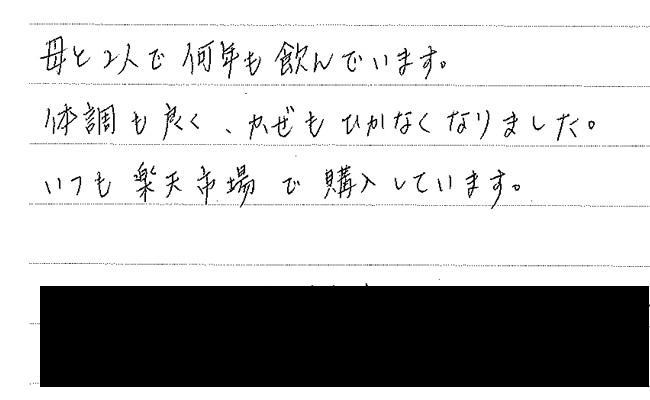 母と2人で何年も飲んでいます。
体調も良く、かぜもひかなくなりました。
いつも楽天市場で購入しています。